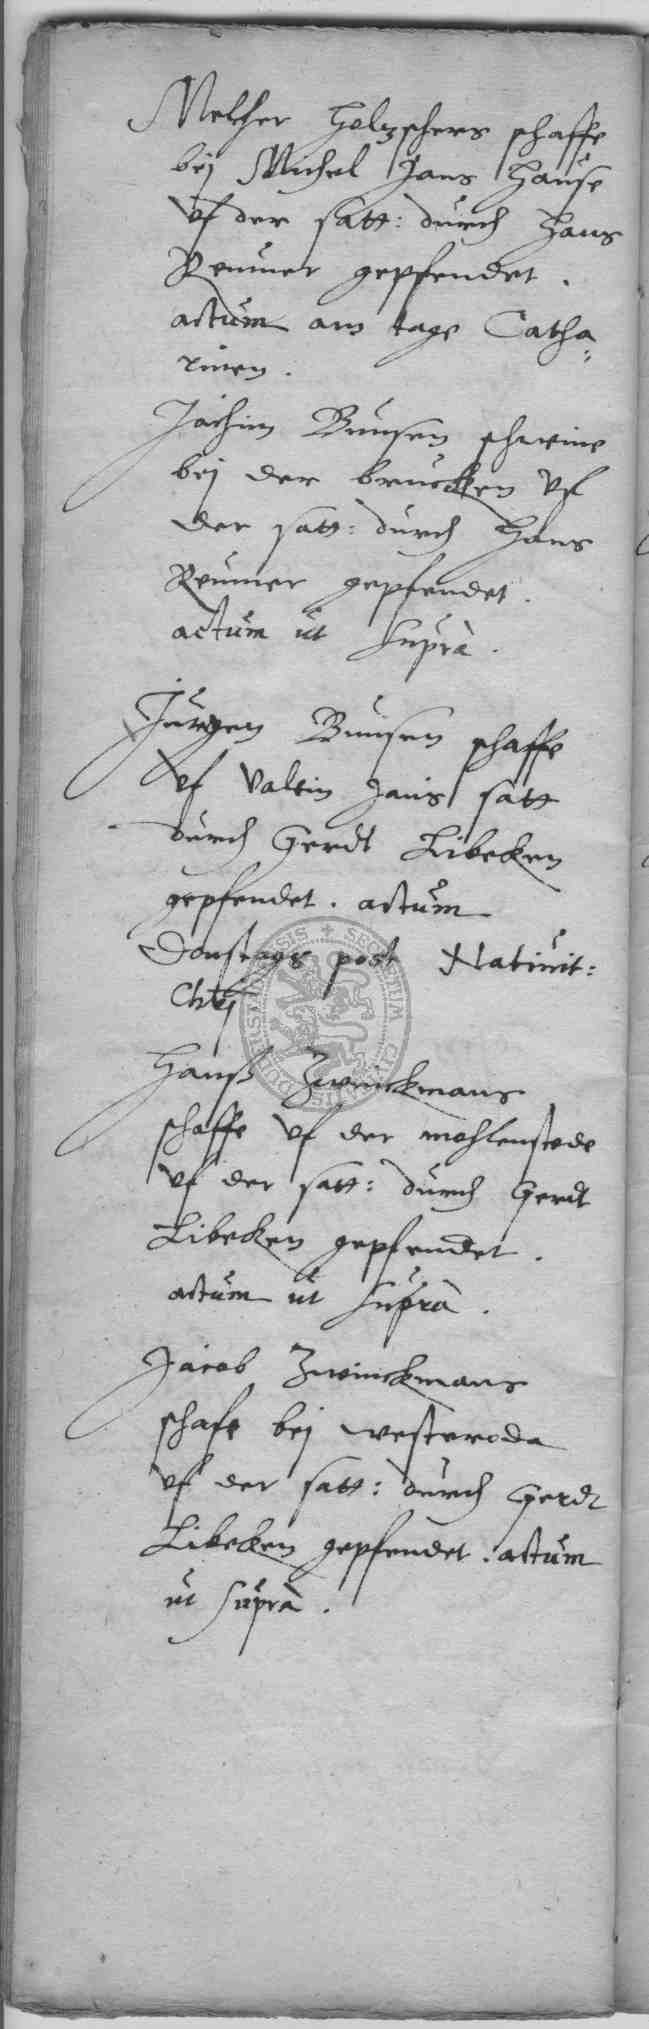 Melcher Holzschers schaffe
bej Michel Jans Hause
vf der satt: durch Hans
Reumer gepfendet.
actum am tage Catha
rinen.
Jochim Bunsen schweine
bej der brucken vf
der satt: durch Hans
Reumer gepfendet.
actum ut supra.
Jurgen Bunsen schaffe
vf Valtin Jans satt
durch Gerdt Libeken
gepfendet. actum
Donstags post Nativit:
Chrj
Hanß Zwinckmans
schaffe vf der mohlenstede
vf der satt: durch Gerdt
Libeken gepfendet.
actum ut supra.
Jacob Zwinckmans
schafe bej westeroda
vf der satt: durch Gerdt
Libeken gepfendet. actum
ut supra.